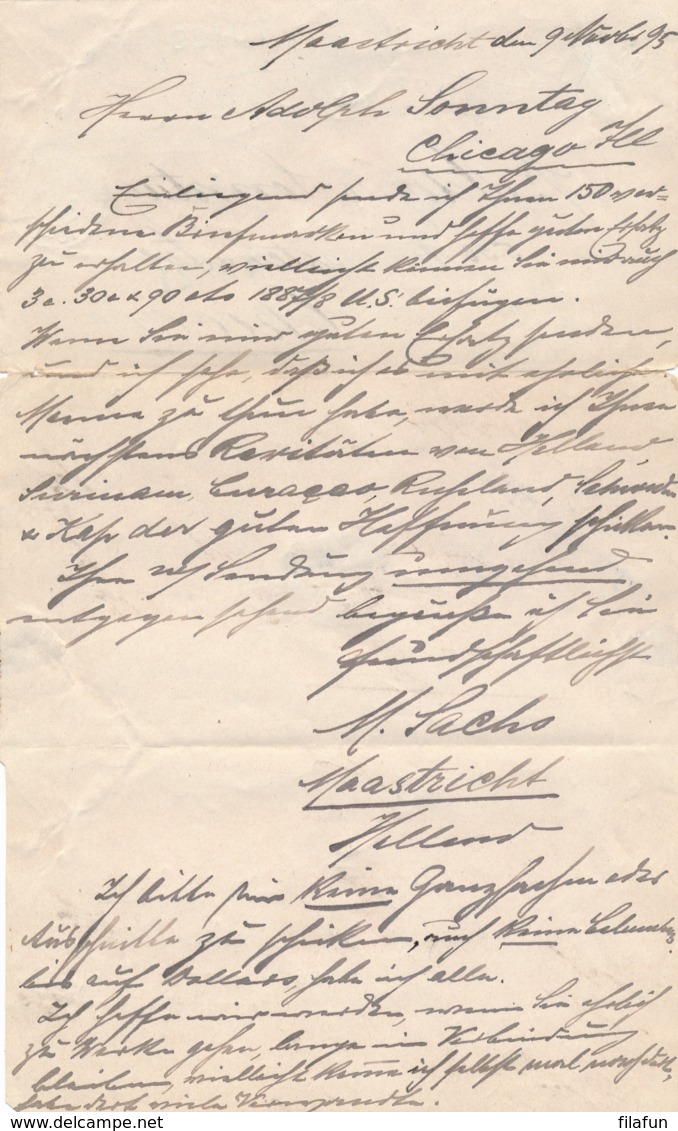 Maastricht den 9 Novbr 95
Herrn Adolph Sonntag
Chicago Ill
Einliegend sende ich Ihnen 150 ver-
schiedene Briefmarken und hoffe guten Ersatz
zu erhalten, vielleicht können Sie mir auch
3c. 30c & 90 cts 1887/8 U.S. beifügen.
Wenn Sie mir guten Ersatz senden,
und ich sehe, daß ich es mit ehrlichem
Manne zu thun habe, werde ich Ihnen
nächstens Raritäten von Holland,
Surinam, Curaçao, Rußland, Schweden
& Kap der guten Hoffnung schicken.
Ihrer Sendung umgehend
entgegen sehend begrüße ich Sie
freundschaftlichst
M. Sachs
Maastricht
Holland
Ich bitte mir keine Ganzsachen oder
Ausschnitte zu schicken, auch keine Columbus
bis auf Dollars, habe ich alle.
Ich hoffe wir werden, wenn Sie ehrlich
zu Werke gehen, lange in Verbindung
bleiben, vielleicht komme ich selbst mal nach dort,
habe dort viele Verwandte.
filafun